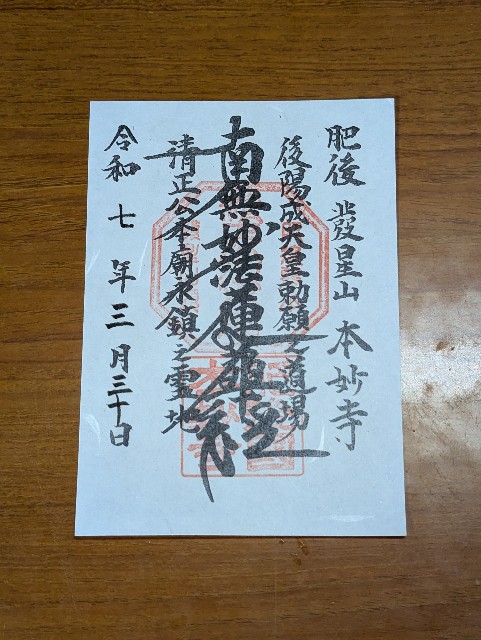 肥後 發星山 本妙寺
後陽成天皇勅願之道場
南無妙法蓮華経
清正公本廟永鎮之霊地
令和七年三月三十日